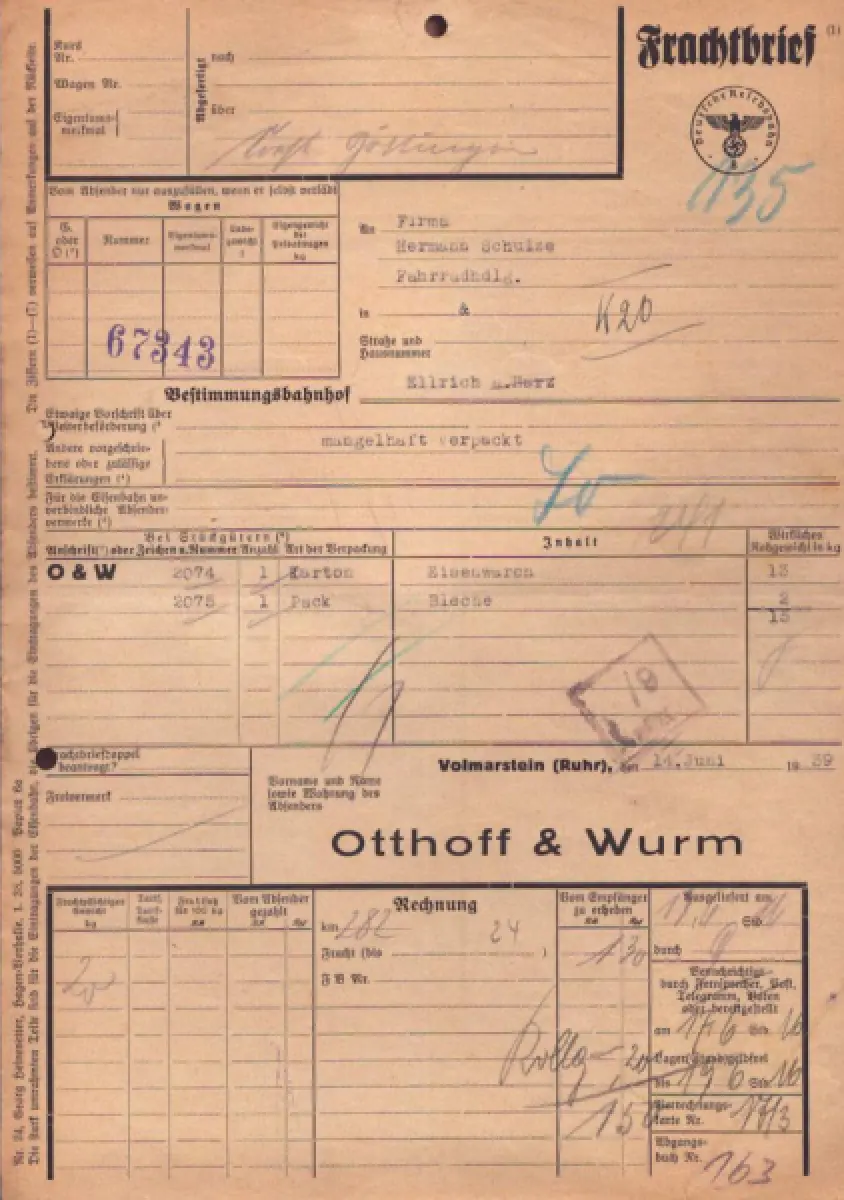 Frachtbrief (1)
Kurs
Nr.
Wagen Nr.
Eigentums-
merkmal
Abgefertigt
nach
über
Göttingen
Deutsche Reichsbahn
135
Vom Absender nur auszufüllen, wenn er selbst verlädt
Wagen
G. oder O (*)
Nummer
Eigentums-
merkmal
Lade-
gewicht
t
Eigengewicht
der
Privatwagen
kg
67343
An Firma
Hermann Schulze
Fahrradhdlg.
in &
K20
Straße und
Hausnummer
Bestimmungsbahnhof Ellrich a.Harz
Etwaige Vorschrift über
Weiterbeförderung (*
mangelhaft verpackt
Andere vorgeschrie-
bene oder zulässige
Erklärungen (*)
Für die Eisenbahn un-
verbindliche Absender-
vermerke (*)
Bei Stückgütern (*)
Anschrift (*) oder Zeichen u. Nummer
Anzahl
Art der Verpackung
Inhalt
Wirkliches
Rohgewicht in kg
O & W 2074 1 Karton Eisenwaren 13
2075 1 Pack Bleche 2
15
Frachtbriefdoppel
beantragt?
Volmarstein (Ruhr), den 14.Juni 19 39
Freivermerk
Vorname und Name
sowie Wohnung des
Absenders
Otthoff & Wurm
Frachtpflichtiges
Gewicht
kg
Frachtsatz
für 100 kg
Vom Absender
gezahlt
Rechnung
km 282 24
Fracht (bis )
F B Nr.
Vom Empfänger
zu erheben
20
130
Rollg 20
150
Ausgeliefert am
Std
durch
Benachrichtigt
durch Fernsprecher, Post,
Telegramm, Boten
oder bereitgestellt
am 17 6 Std. 16
Lager(Stand)geldfrei
bis 19 6 Std. 16
Verrechnungs-
karte Nr. 17/3
Abgangs-
buch Nr. 163
Die Ziffern (1)—(7) verweisen auf Anmerkungen auf der Rückseite.
Die stark umrahmten Teile sind für die Eintragungen der Eisenbahn, die übrigen für die Eintragungen des Absenders bestimmt.